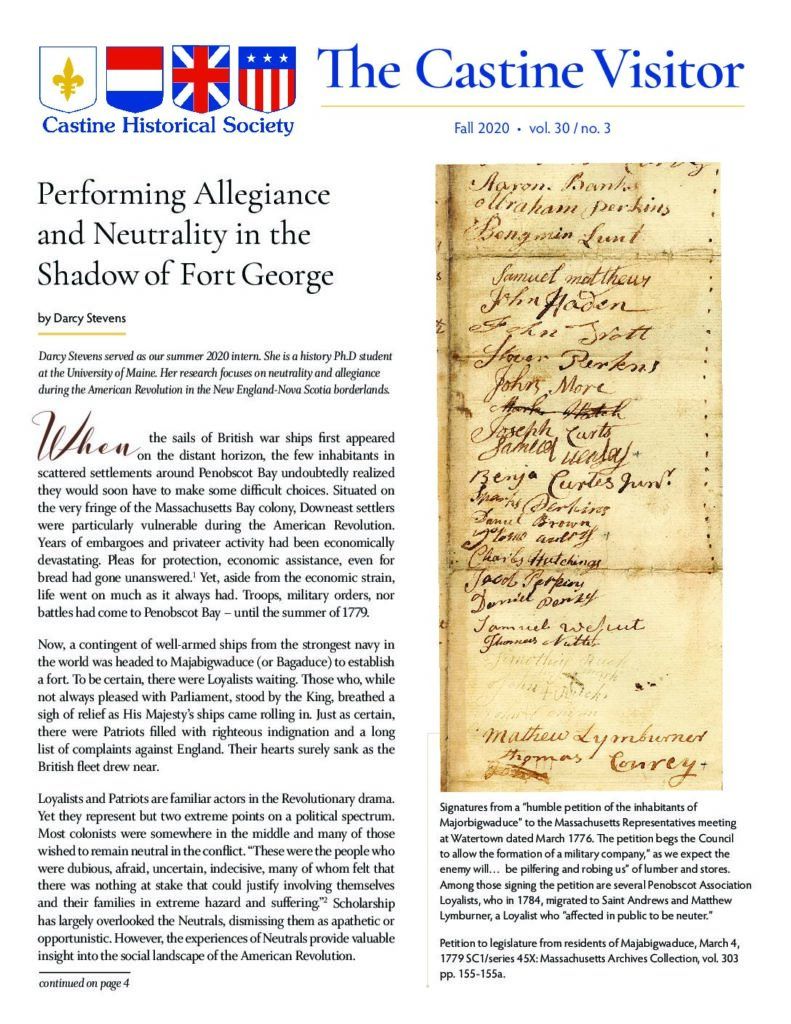 Castine Historical Society
The Castine Visitor
Fall 2020 • vol. 30 / no. 3
Performing Allegiance
and Neutrality in the
Shadow of Fort George
by Darcy Stevens
Darcy Stevens served as our summer 2020 intern. She is a history Ph.D student
at the University of Maine. Her research focuses on neutrality and allegiance
during the American Revolution in the New England-Nova Scotia borderlands.
When the sails of British war ships first appeared
on the distant horizon, the few inhabitants in
scattered settlements around Penobscot Bay undoubtedly realized
they would soon have to make some difficult choices. Situated on
the very fringe of the Massachusetts Bay colony, Downeast settlers
were particularly vulnerable during the American Revolution.
Years of embargoes and privateer activity had been economically
devastating. Pleas for protection, economic assistance, even for
bread had gone unanswered.1 Yet, aside from the economic strain,
life went on much as it always had. Troops, military orders, nor
battles had come to Penobscot Bay – until the summer of 1779.
Now, a contingent of well-armed ships from the strongest navy in
the world was headed to Majabigwaduce (or Bagaduce) to establish
a fort. To be certain, there were Loyalists waiting. Those who, while
not always pleased with Parliament, stood by the King, breathed a
sigh of relief as His Majesty's ships came rolling in. Just as certain,
there were Patriots filled with righteous indignation and a long
list of complaints against England. Their hearts surely sank as the
British fleet drew near.
Loyalists and Patriots are familiar actors in the Revolutionary drama.
Yet they represent but two extreme points on a political spectrum.
Most colonists were somewhere in the middle and many of those
wished to remain neutral in the conflict. “These were the people who
were dubious, afraid, uncertain, indecisive, many of whom felt that
there was nothing at stake that could justify involving themselves
and their families in extreme hazard and suffering.”2 Scholarship
has largely overlooked the Neutrals, dismissing them as apathetic or
opportunistic. However, the experiences of Neutrals provide valuable
insight into the social landscape of the American Revolution.
continued on page 4
Aaron Banks
Abraham Perkins
Bengmin Lunt
Samuel matthews
John Haden
John Trott
Stover Perkins
John More
Joseph Curts
Benja Curtes Junr.
Sparks Perkins
Daniel Brown
Charls Hutchings
Jacob Perkins
Daniel
Samuel Wescut
Thomas
Mathew Lymburner
Thomas Conrey +
Signatures from a “humble petition of the inhabitants of
Majorbigwaduce” to the Massachusetts Representatives meeting
at Watertown dated March 1776. The petition begs the Council
to allow the formation of a military company,” as we expect the
enemy will… be pilfering and robing us” of lumber and stores.
Among those signing the petition are several Penobscot Association
Loyalists, who in 1784, migrated to Saint Andrews and Matthew
Lymburner, a Loyalist who “affected in public to be neuter.”
Petition to legislature from residents of Majabigwaduce, March 4,
1779 SC1/series 45X: Massachusetts Archives Collection, vol. 303
pp. 155-155a.